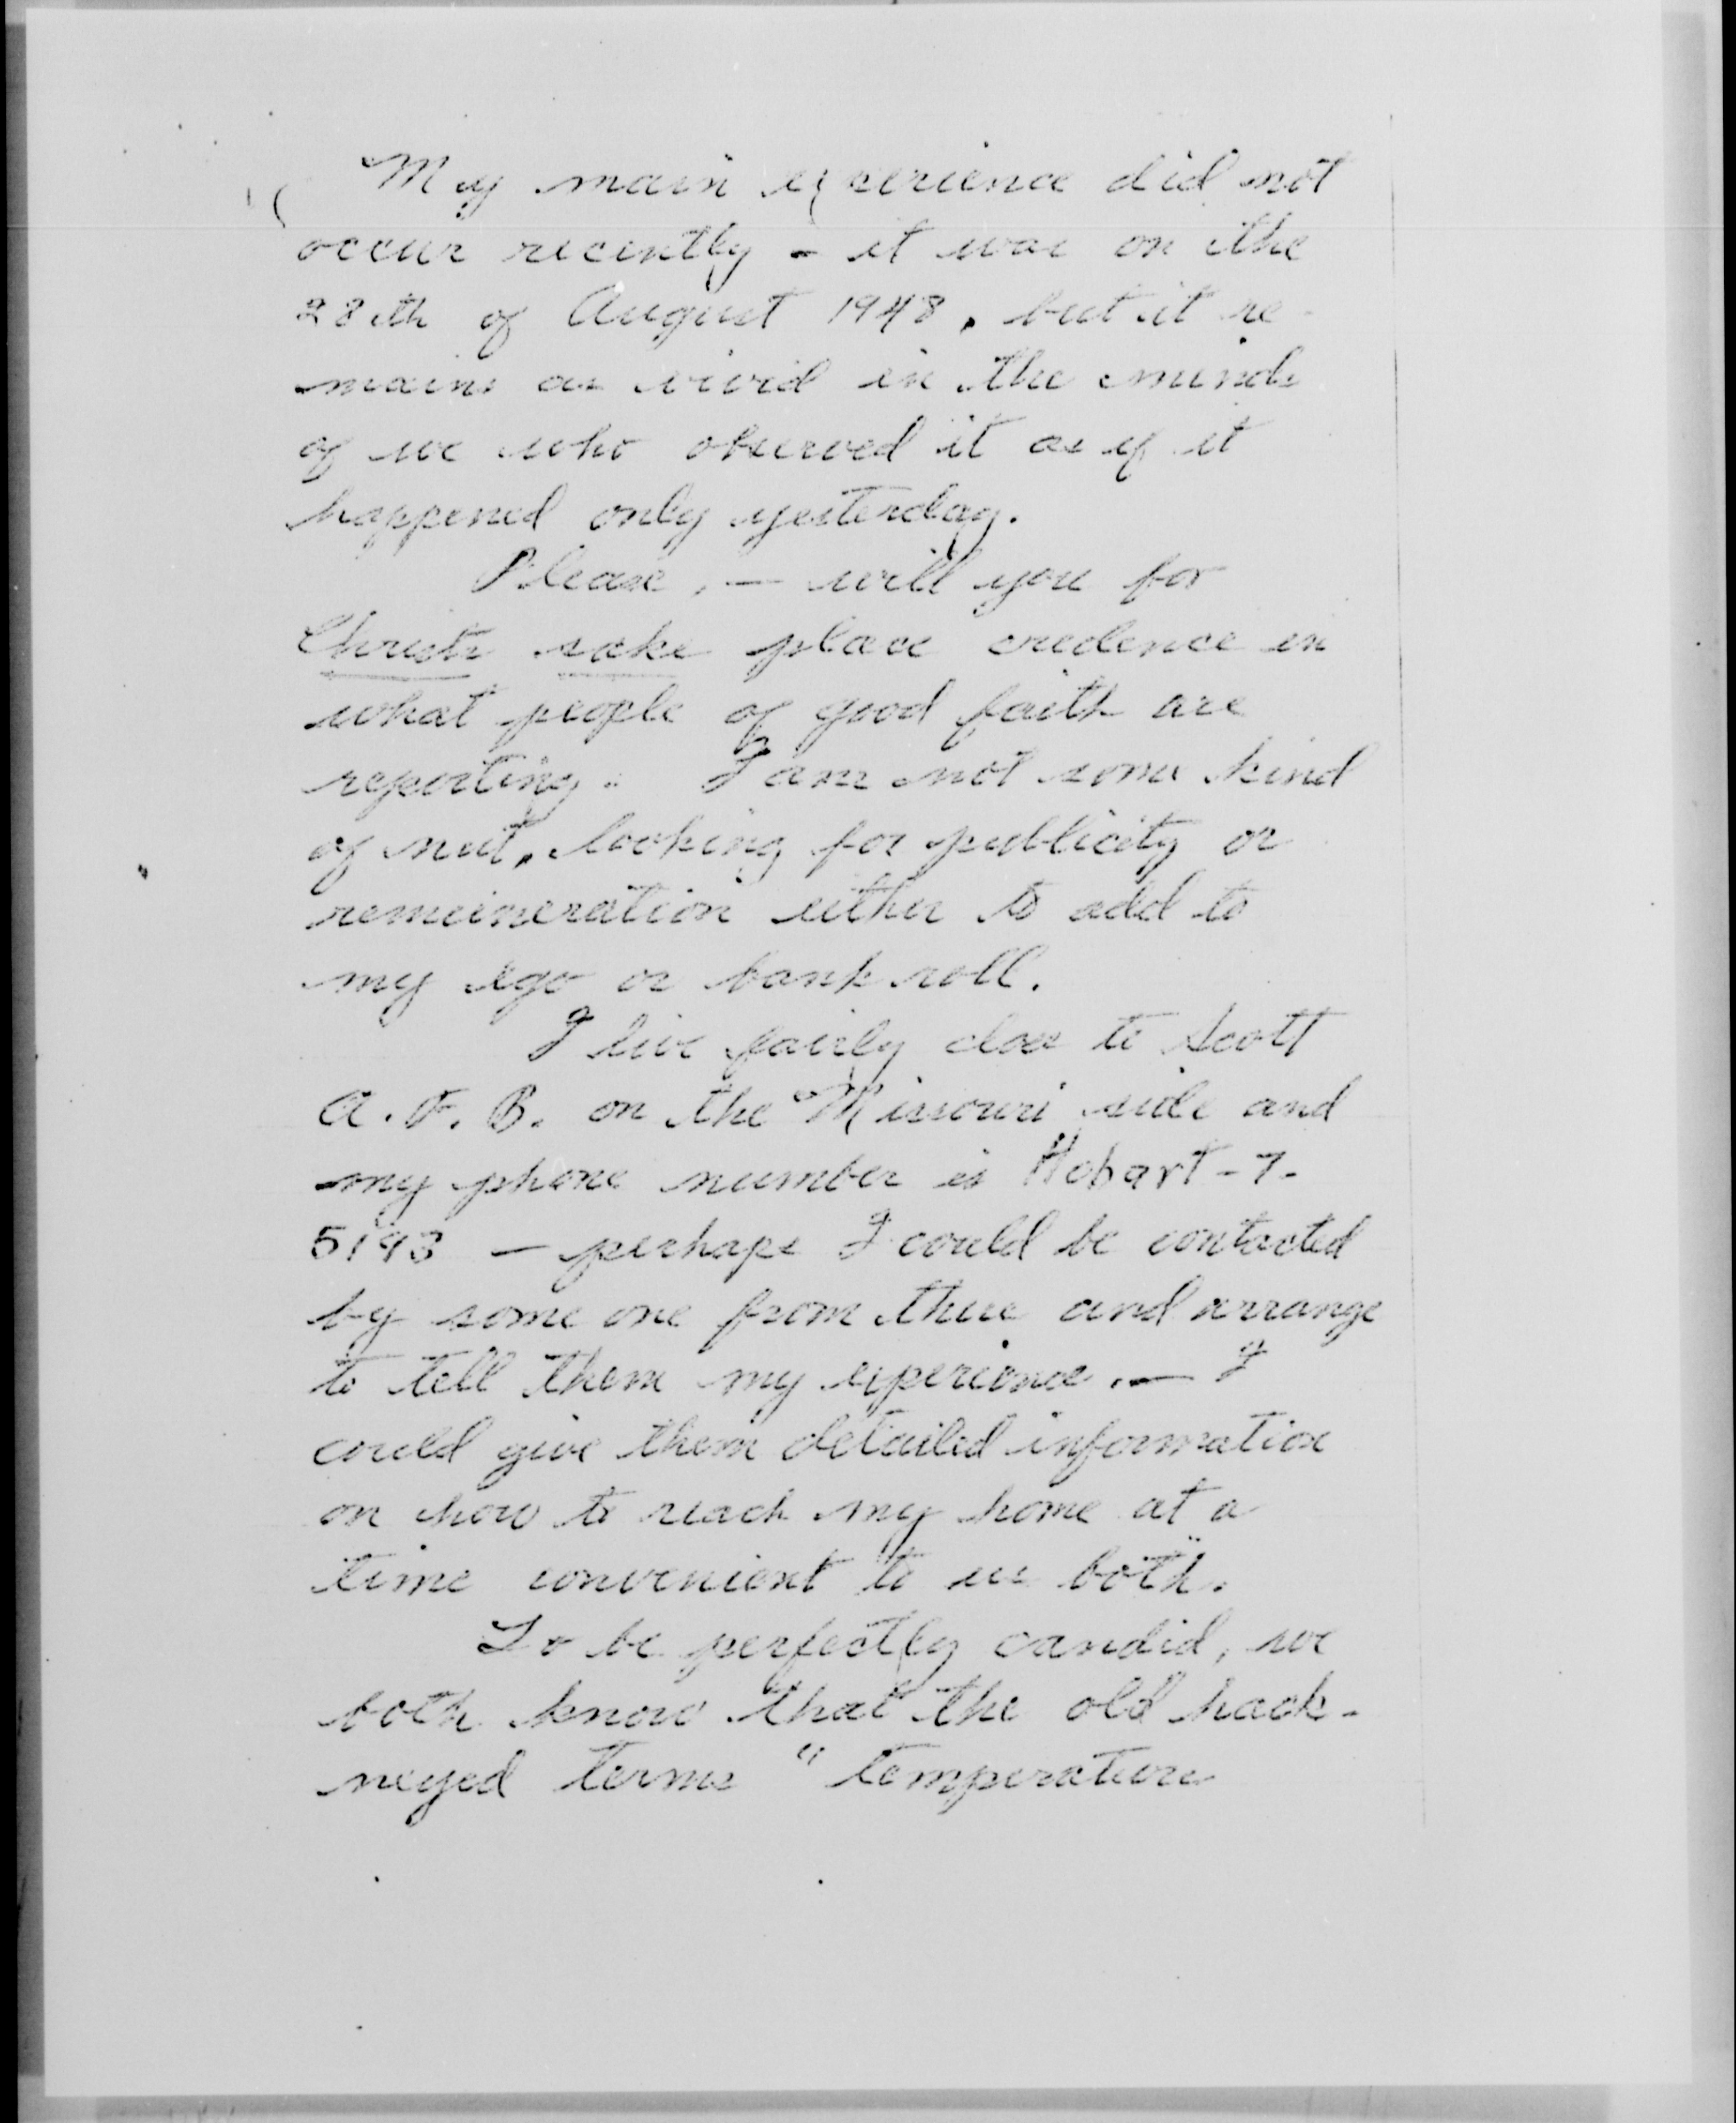 My main experience did not
occur recently - it was on the
28th of August 1948, but it re-
mains as vivid in the minds
of we who observed it as if it
happened only yesterday.
Please, — will you for
Christs sake place credence in
what people of good faith are
reporting. I am not some kind
of nut, looking for publicity or
remuneration either to add to
my ego or bank roll.
I live fairly close to Scott
A.F.B. on the Missouri side and
my phone number is Hobart-7-
5193 — perhaps I could be contacted
by some one from there and arrange
to tell them my experience. — I
could give them detailed information
on how to reach my home at a
time convenient to us both.
To be perfectly candid, we
both know that the old hack-
neyed terms "temperature